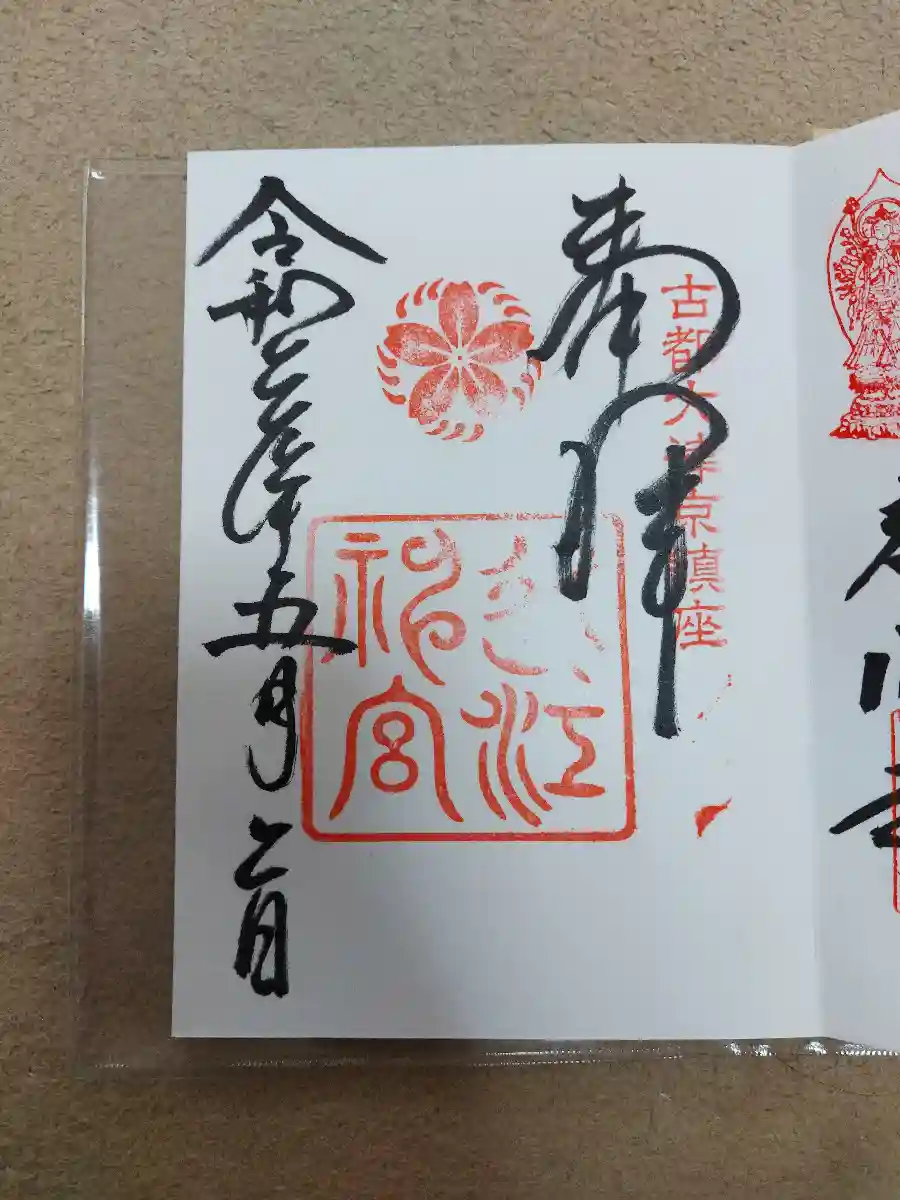 古都大津京鎮座
奉拝
近江
神宮
令和三年五月二日